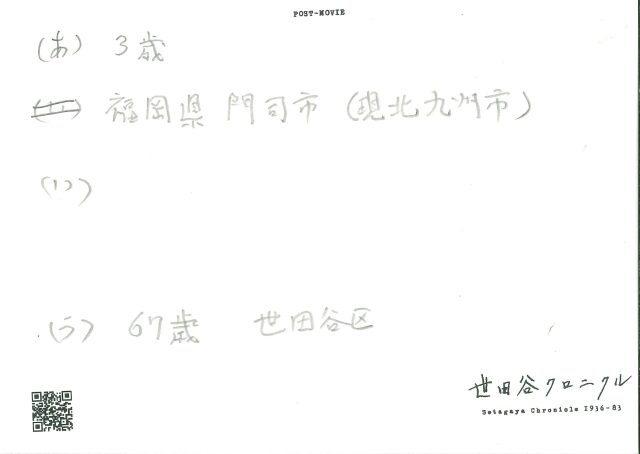 POST-MOVIE
(あ) 3歳
福岡県 門司市 (現北九州市)
(い)
(う) 67歳 世田谷区
世田谷クロニクル
Setagaya Chronicle 1936-83